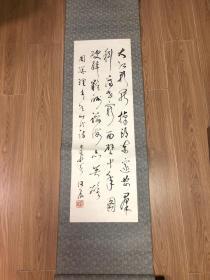 大江歌罢掉头东邃密群
科济世穷面壁十年图
破壁难酬蹈海亦英雄
周总理青年